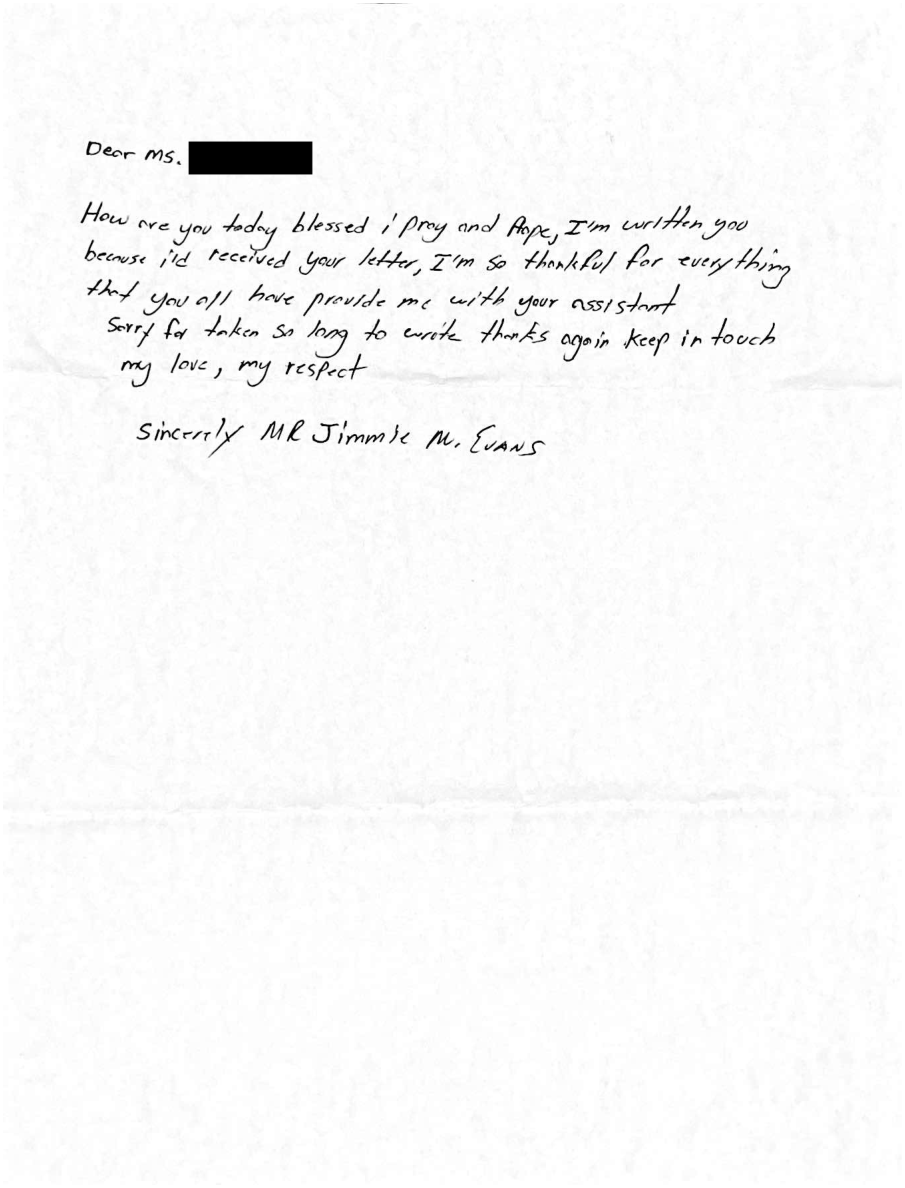 Dear Ms.
How are you today blessed i pray and Hope, I'm written you
because i'd received your letter, I'm so thankful for everything
that you all have provide me with your assistant
Sorry for taken so long to write thanks again keep in touch
my love, my respect
Sincerely MR Jimmie M. EVANS